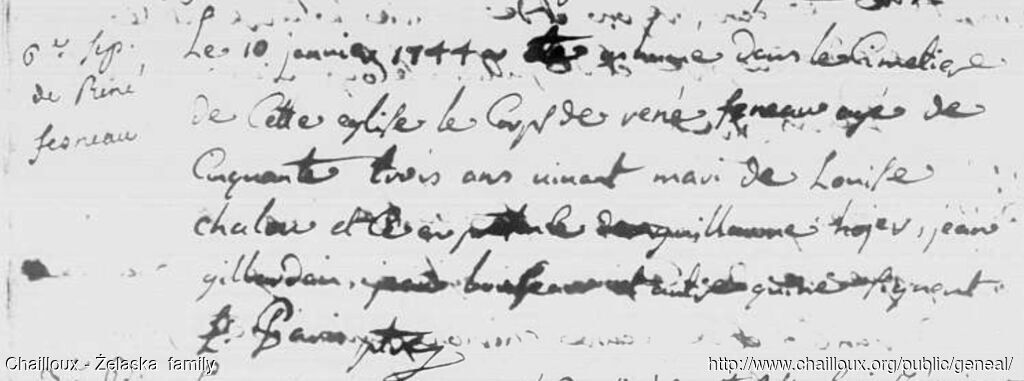 6e sep.
de René
fesneau
Le 10 janvier 1744 a été inhumé dans le Cimetiere
de Cette église le Corps de rené fesneau agé de
Cinquante trois ans vivant mari de Louise
chalou et Ce en de guillaume hoyer, jean
gillardain, et autre qui ne signent.
Chailloux - Żelaska family
http://www.chailloux.org/public/geneal/